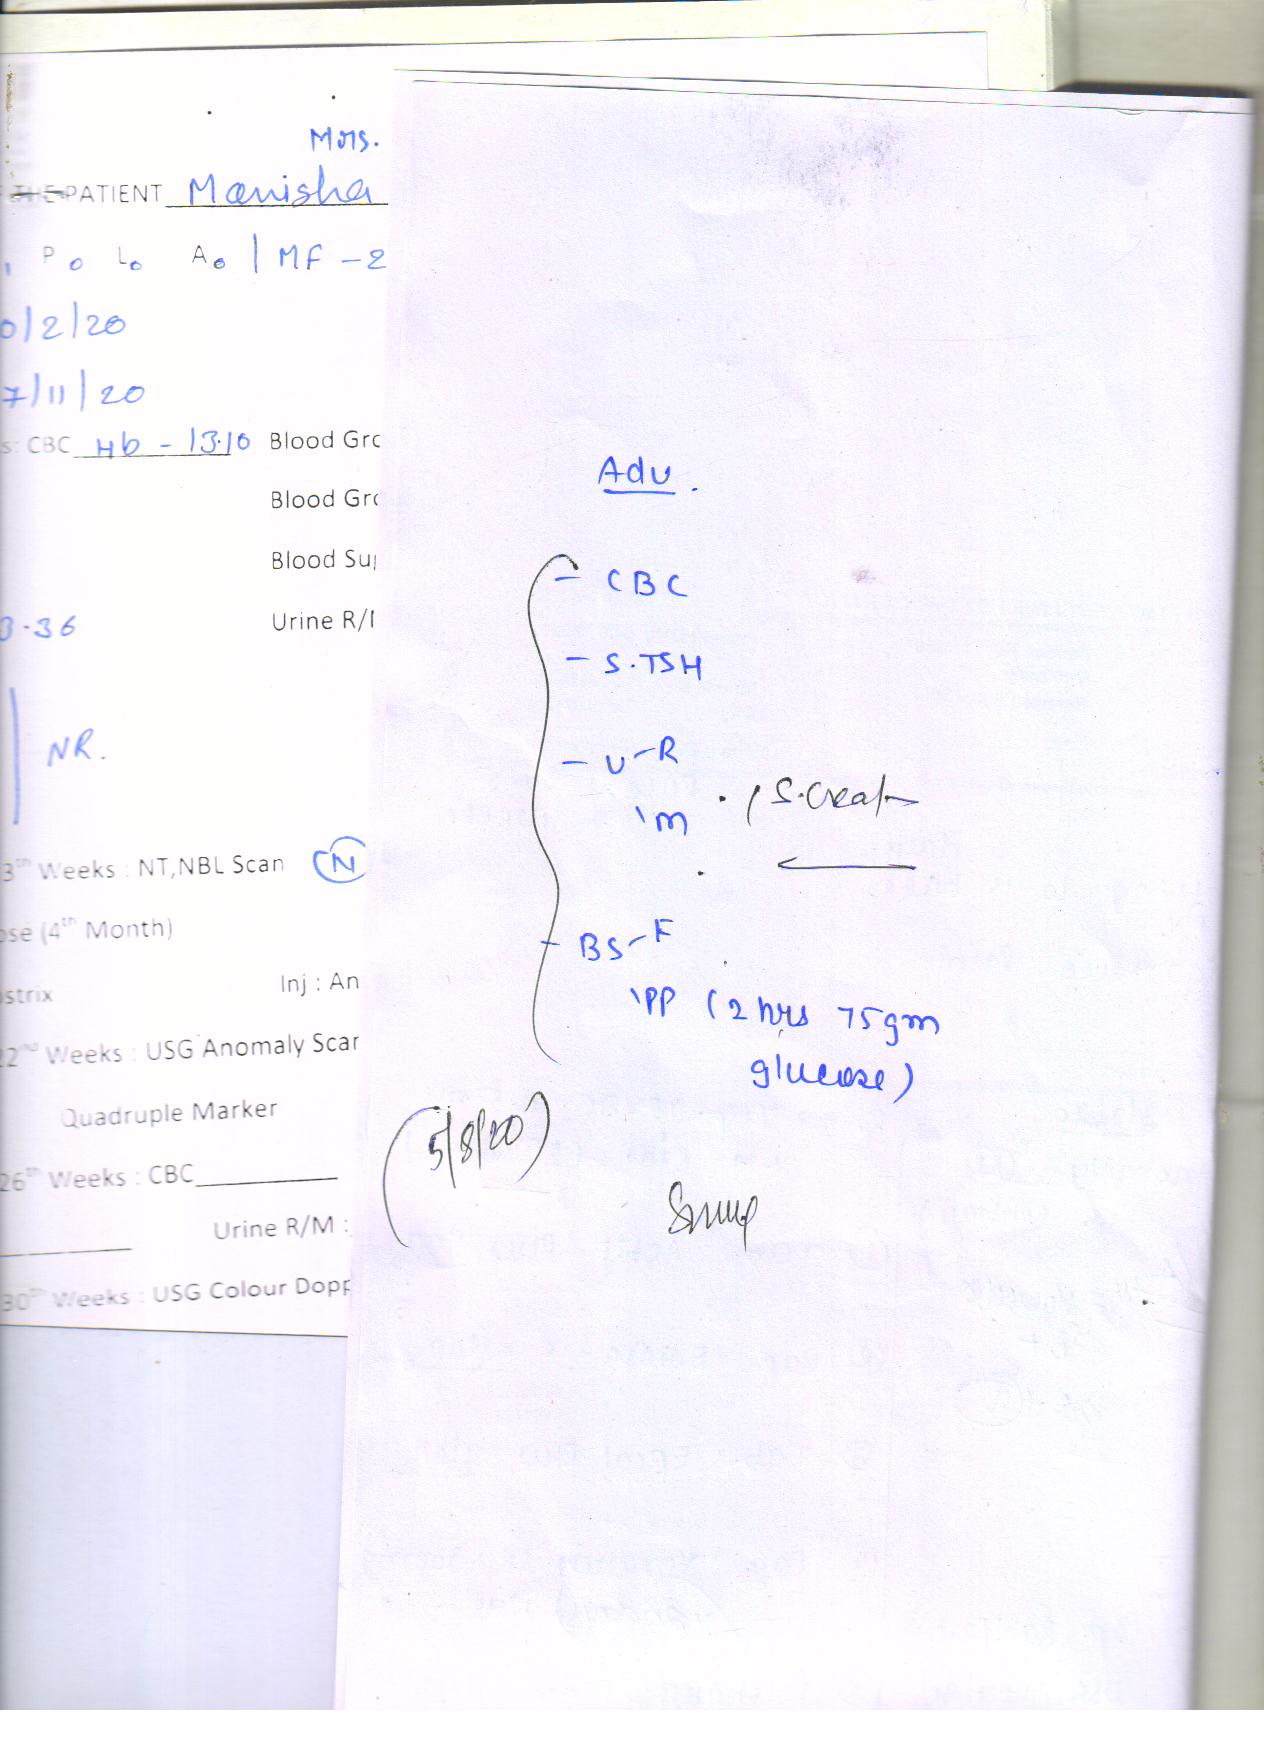 Mrs.
PATIENT Manisha
P0 L0 A0 | MF - 2
0/2/20
7/11/20
s: CBC Hb - 13.10 Blood Gro
Blood Gro
Blood Su
3.36 Urine R/
NR.
3th Weeks : NT,NBL Scan N
ose (4th Month)
ostrix Inj : An
22nd Weeks : USG Anomaly Scar
Quadruple Marker
26th Weeks : CBC
Urine R/M :
30th Weeks : USG Colour Dopp
Adv.
- CBC
- S.TSH
- U - R
\ M / S.Creat
- BS - F
\ PP (2 hrs 75gm
glucose)
(5/8/20)